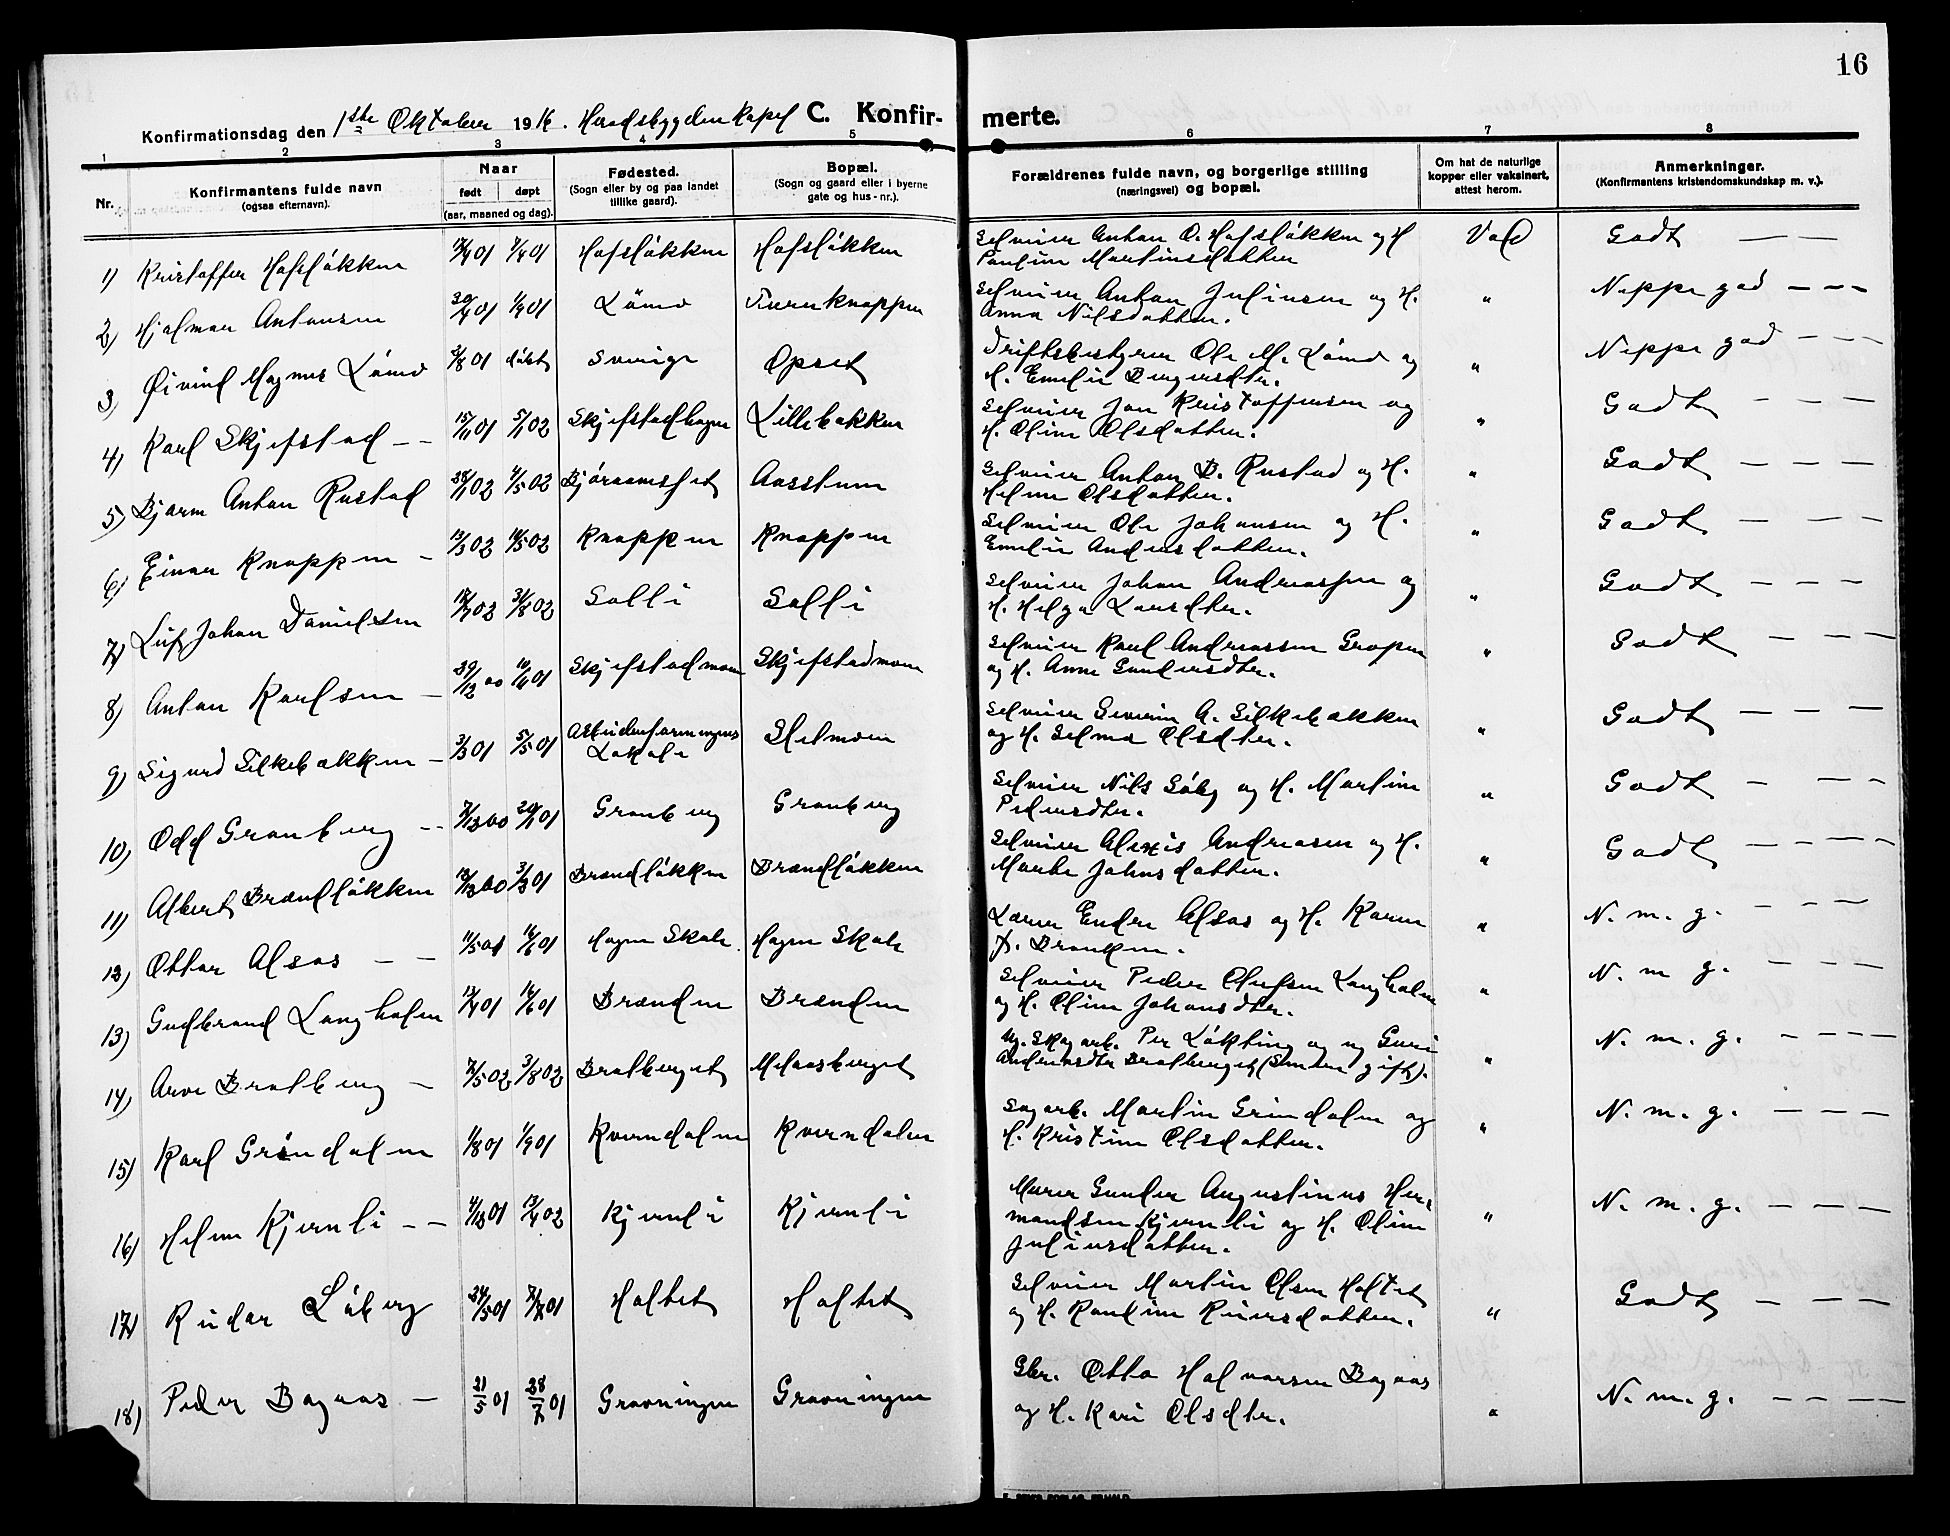 16
Konfirmationsdag den 1ste Oktober 1916. Heradsbygden Kapel C. Konfirmerte.
1 2 3 4 5 6 7 8
Nr.
Konfirmantens fulde navn
(ogsaa efternavn).
Naar
født døpt
(aar, maaned og dag).
Fødested.
(Sogn eller by og paa landet
tillike gaard).
Bopæl.
(Sogn og gaard eller i byerne
gate og hus-nr.).
Forældrenes fulde navn, og borgerlige stilling
(næringsvei) og bopæl.
Om hat de naturlige
kopper eller vaksinert,
attest herom.
Anmerkninger.
(Konfirmantens kristendomskundskap m. v.).
1) Kristoffer Hafsløkken 01 01 Hafsløkken Hafsløkken Selveier Anton O. Hafsløkken og H Pauline Martinsdatter Vakc Godt — —
2) Hjalmar Antonsen 01 1/9 01 Lømo Selveier Anton Juliusen og H. Anna Nilsdatter. " Neppe god — — —
3) Øivind Magnus Lømo 3/8 01 døbt Sverige Opset Driftsbestyrer Ole M. Lømo og H. Emelie Birgersdtr. " Neppe god — — —
4) Karl Skjefstad — — 15/11 01 5/1 02 Skjefstadhagen Lillebakken Selveier Jon Kristoffersen og H. Oline Olsdatter. " Godt — — —
5) Bjarne Anton Rustad 28/1 02 4/5 02 Bjøraanesset Aasstuen Selveier Anton B. Rustad og H. Helene Olsdatter. " Godt — — —
6) Einar Knappen — 13/3 02 18/5 02 Knappen Knappen Selveier Ole Johansen og H. Emelie Andersdatter. " Godt — — —
7) Leif Johan Danielsen 02 31/8 02 Solli Solli Selveier Johan Andreassen og H. Helga Larsdtr. " Godt — — —
8) Anton Karlsen — 29/12 00 01 Skjefstadmoen Skjefstadmoen Selveier Karl Andreassen Gropen og H. Anne Gundersdtr. " Godt — — —
9) Sigurd Silkebækken — 3/3 01 5/5 01 Arbeiderforeningens Lokale Stetmoen Selveier Severin A. Silkebækken og H. Selma Olsdtr. " Godt — — —
10) Odd Granberg — — 7/12 00 20/1 01 Granberg Granberg Selveier Nils Søby og H. Martine Pedersdtr. " Godt — — —
11) Albert Brændløkken 12/12 00 3/3 01 Brændløkken Brændløkken Selveier Alexis Andreasen og H. Marte Johnsdatter. " Godt — — —
12) Ottar Alsos — — 11/5 01 16/6 01 Hagen Skole Hagen Skole Lærer Endre Alsos og H. Karen P. Brænden. " N. m. g. — — —
13) Gudbrand Langholm 12/4 01 16/6 01 Brænden Brænden Selveier Peder Olufsen Langholm og H. Oline Johansdtr. " N. m g. — — —
14) Arve Bratberg — 2/5 02 3/8 02 Bratberget Melaasberget Ug. Skogarb. Per Løkting og ug Guri Andreasdtr Bratberget (Senere gift). " N. m. g. — — — —
15) Karl Grindalen 1/8 01 1/9 01 Kverndalen Kverndalen Sagarb. Martin Grindalen og H. Kristine Olsdatter. " N. m. g. — — — —
16) Helene Kjernli — — 4/12 01 13/4 02 Kjernli Kjernli Murer Gunder Augustinus Hermandsen Kjernli og H. Oline Juliusdatter. " N. m. g. — — — —
17) Reidar Løberg 24/5 01 7/7 01 Holtet Holtet Selveier Martin Olsen Holtet og H. Karoline Reiersdatter. " Godt — — — —
18) Peder Bagaas — 21/5 01 28/7 01 Gravningen Gravningen Gbr. Otto Halvorsen Bagaas og H. Kari Olsdtr. " N. m. g. — — — —